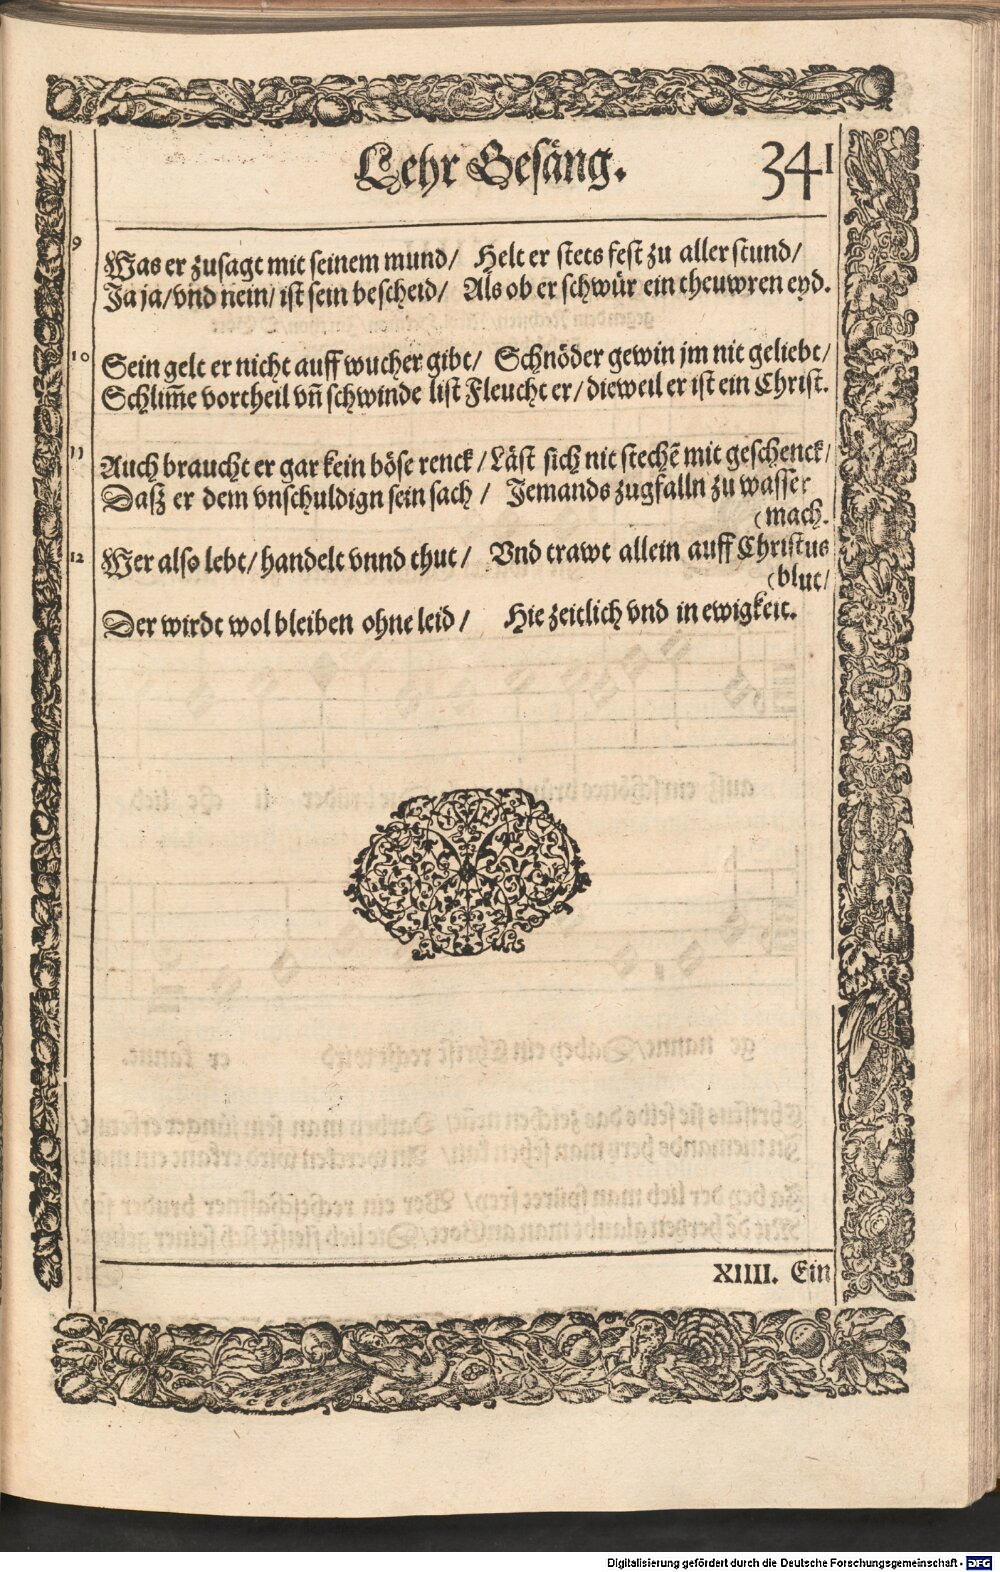 Lehr Gesäng. 341
9 Was er zusagt mit seinem mund/ Helt er stets fest zu aller stund/
Ja ja/vnd nein/ ist sein bescheid/ Als ob er schwür ein theuwren eyd.
10 Sein gelt er nicht auff wucher gibt/ Schnöder gewin jm nit geliebt/
Schlim̃e vortheil vn̄ schwinde list Fleucht er/ dieweil er ist ein Christ.
11 Auch braucht er gar kein böse renck/ Läst sich nit stechē mit geschenck/
Dasz er dem vnschuldign sein sach/ Jemands zugfalln zu wasser
(mach.
12 Wer also lebt/ handelt vnnd thut/ Vnd trawt allein auff Christus
(blut/
Der wirdt wol bleiben ohne leid/ Hie zeitlich vnd in ewigkeit.
XIIII. Ein
Digitalisierung gefördert durch die Deutsche Forschungsgemeinschaft - DFG